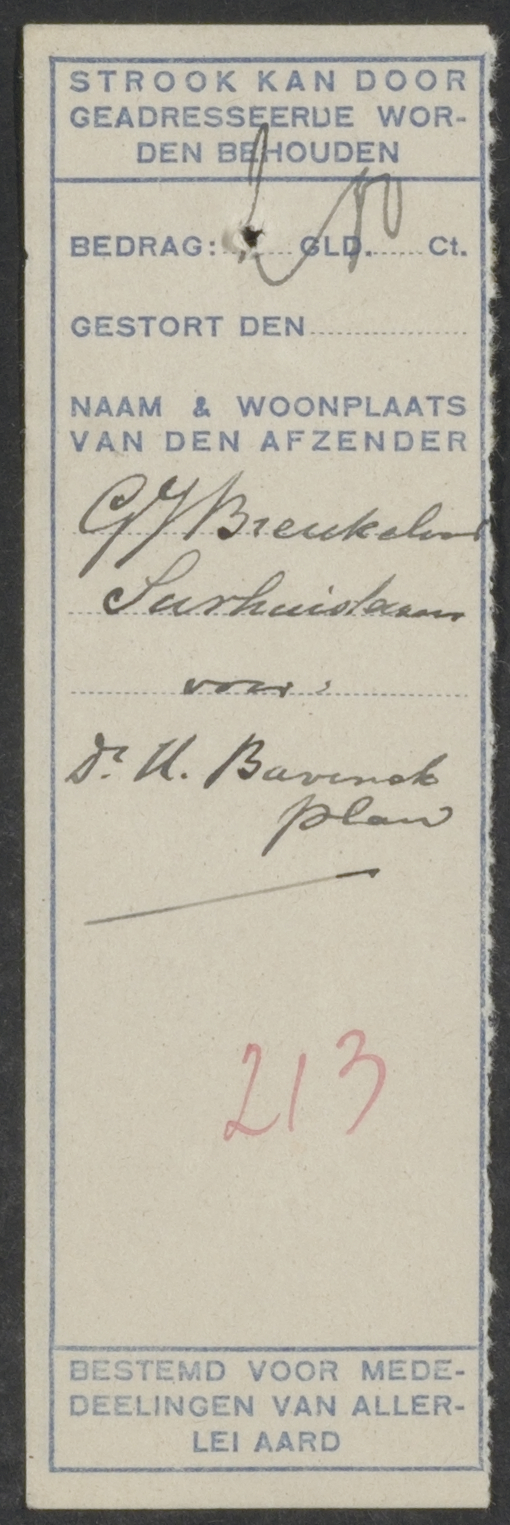 STROOK KAN DOOR
GEADRESSEERDE WOR-
DEN BEHOUDEN
BEDRAG: 2 GLD. 50 Ct.
GESTORT DEN
NAAM & WOONPLAATS
VAN DEN AFZENDER
GJ Breukelaar
Surhuisterveen
voor:
Dr. H. Bavinck
plan
213
BESTEMD VOOR MEDE-
DEELINGEN VAN ALLER-
LEI AARD